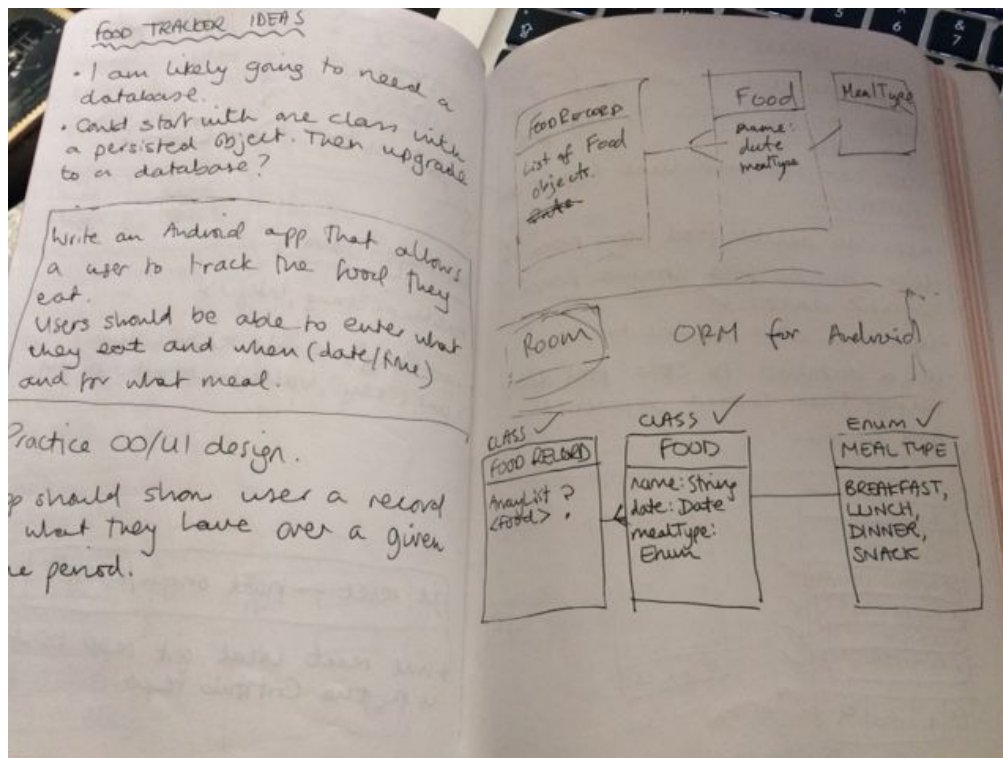 FOOD TRACKER IDEAS
• I am likely going to need a
database.
• Could start with one class with
a persisted object. Then upgrade
to a database?
Write an Android app that allows
a user to track the food they
eat.
Users should be able to enter what
they eat and when (date/time)
and for what meal.
Practice OO/UI design.
p should show user a record
what they have over a given
e period.
FOOD RECORD
List of Food
objects.
Food
name:
date
mealType
MealType
ROOM
ORM for Android
CLASS ✓
FOOD RECORD
ArrayList ?
<Food> .
CLASS ✓
FOOD
name: String
date: Date
mealType:
Enum
ENUM ✓
MEAL TYPE
BREAKFAST,
LUNCH,
DINNER,
SNACK
5
6
&
7